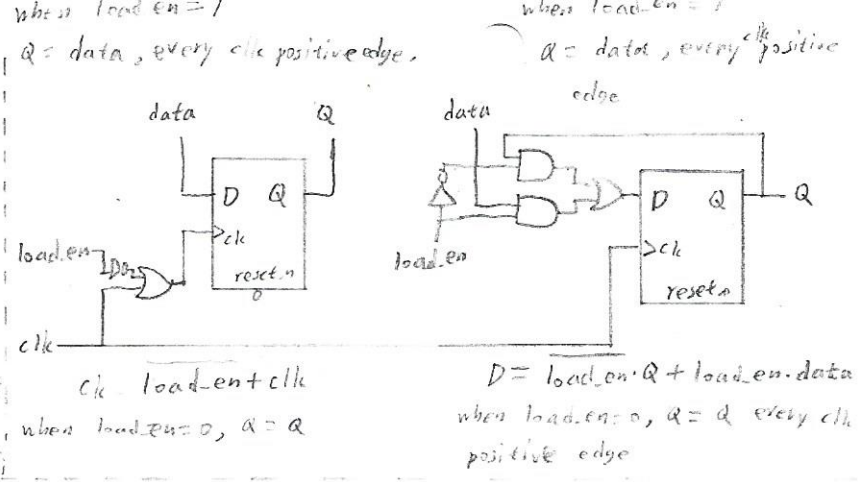 when load_en = 1
Q = data, every clk positive edge.
data
Q
D Q
ck
load_en
reset_n
clk
ck = \overline{load_en} + clk
when load_en = 0, Q = Q
when load_en = 1
Q = data, every clk positive
edge
data
D Q
Q
ck
load_en
reset_n
D = \overline{load_en}·Q + load_en·data
when load_en = 0, Q = Q every clk
positive edge